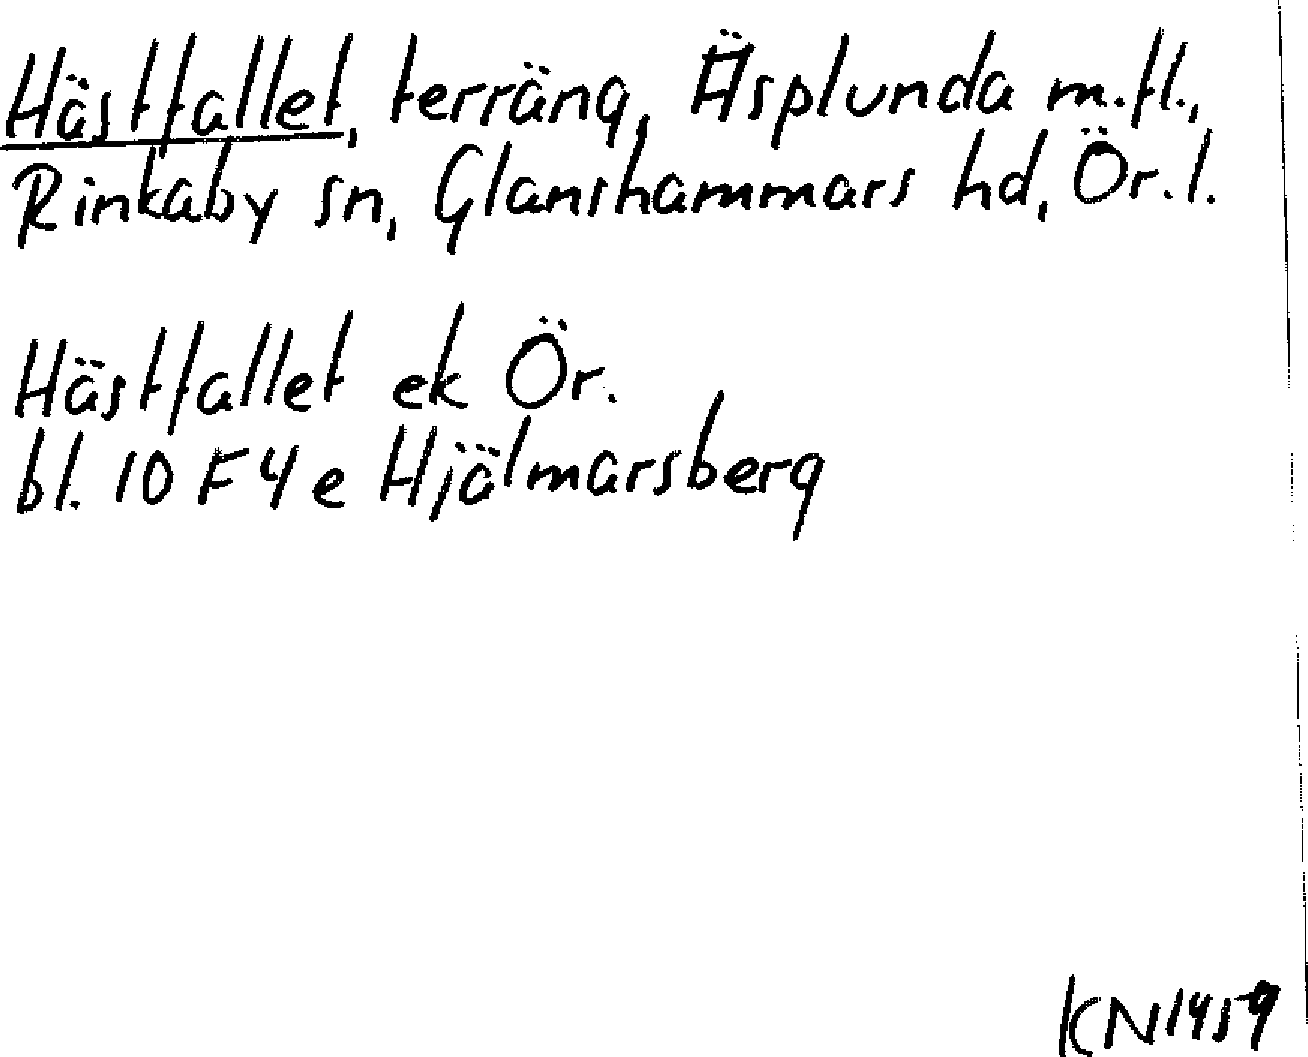 Hästfallet, terräng, Äsplunda m.fl.,
Rinkaby sn, Glanshammars hd, Ör.l.
Hästfallet ek Ör.
bl. 10 F 4 e Hjälmarsberg
KN1459